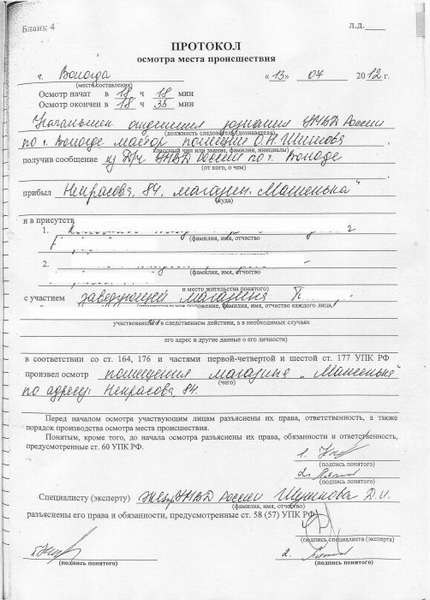 Бланк 4
Л.Д.
ПРОТОКОЛ
осмотра места происшествия
г. Вологда «13» 04 2012 г.
(место составления)
Осмотр начат в 18 ч 18 мин
Осмотр окончен в 18 ч 35 мин
Начальник отделения дознания УМВД России
(должность следователя (дознавателя),
по г. Вологде майор полиции О.Н. Шитова
классный чин или звание, фамилия, инициалы)
получив сообщение из Д/ч УМВД России по г. Вологде
(от кого, о чем)
прибыл Некрасова, 84, магазин „Машенька"
(куда)
и в присутствии понятых:
1.
(фамилия, имя, отчество
2.
(фамилия, имя, отчество
и место жительства понятого)
с участием заведующей магазина
фамилия, имя, отчество каждого лица,
участвовавшего в следственном действии, а в необходимых случаях
его адрес и другие данные о его личности)
в соответствии со ст. 164, 176 и частями первой-четвертой и шестой ст. 177 УПК РФ
произвел осмотр помещения магазина „Машенька"
(чего)
по адресу: Некрасова, 84.
Перед началом осмотра участвующим лицам разъяснены их права, ответственность, а также
порядок производства осмотра места происшествия.
Понятым, кроме того, до начала осмотра разъяснены их права, обязанности и ответственность,
предусмотренные ст. 60 УПК РФ.
1.
(подпись понятого)
2.
(подпись понятого)
Специалисту (эксперту) УМВД России Д.И.
(фамилия, имя, отчество)
разъяснены его права и обязанности, предусмотренные ст. 58 (57) УПК РФ
(подпись специалиста (эксперта)
1. 2.
(подпись понятого) (подпись понятого)